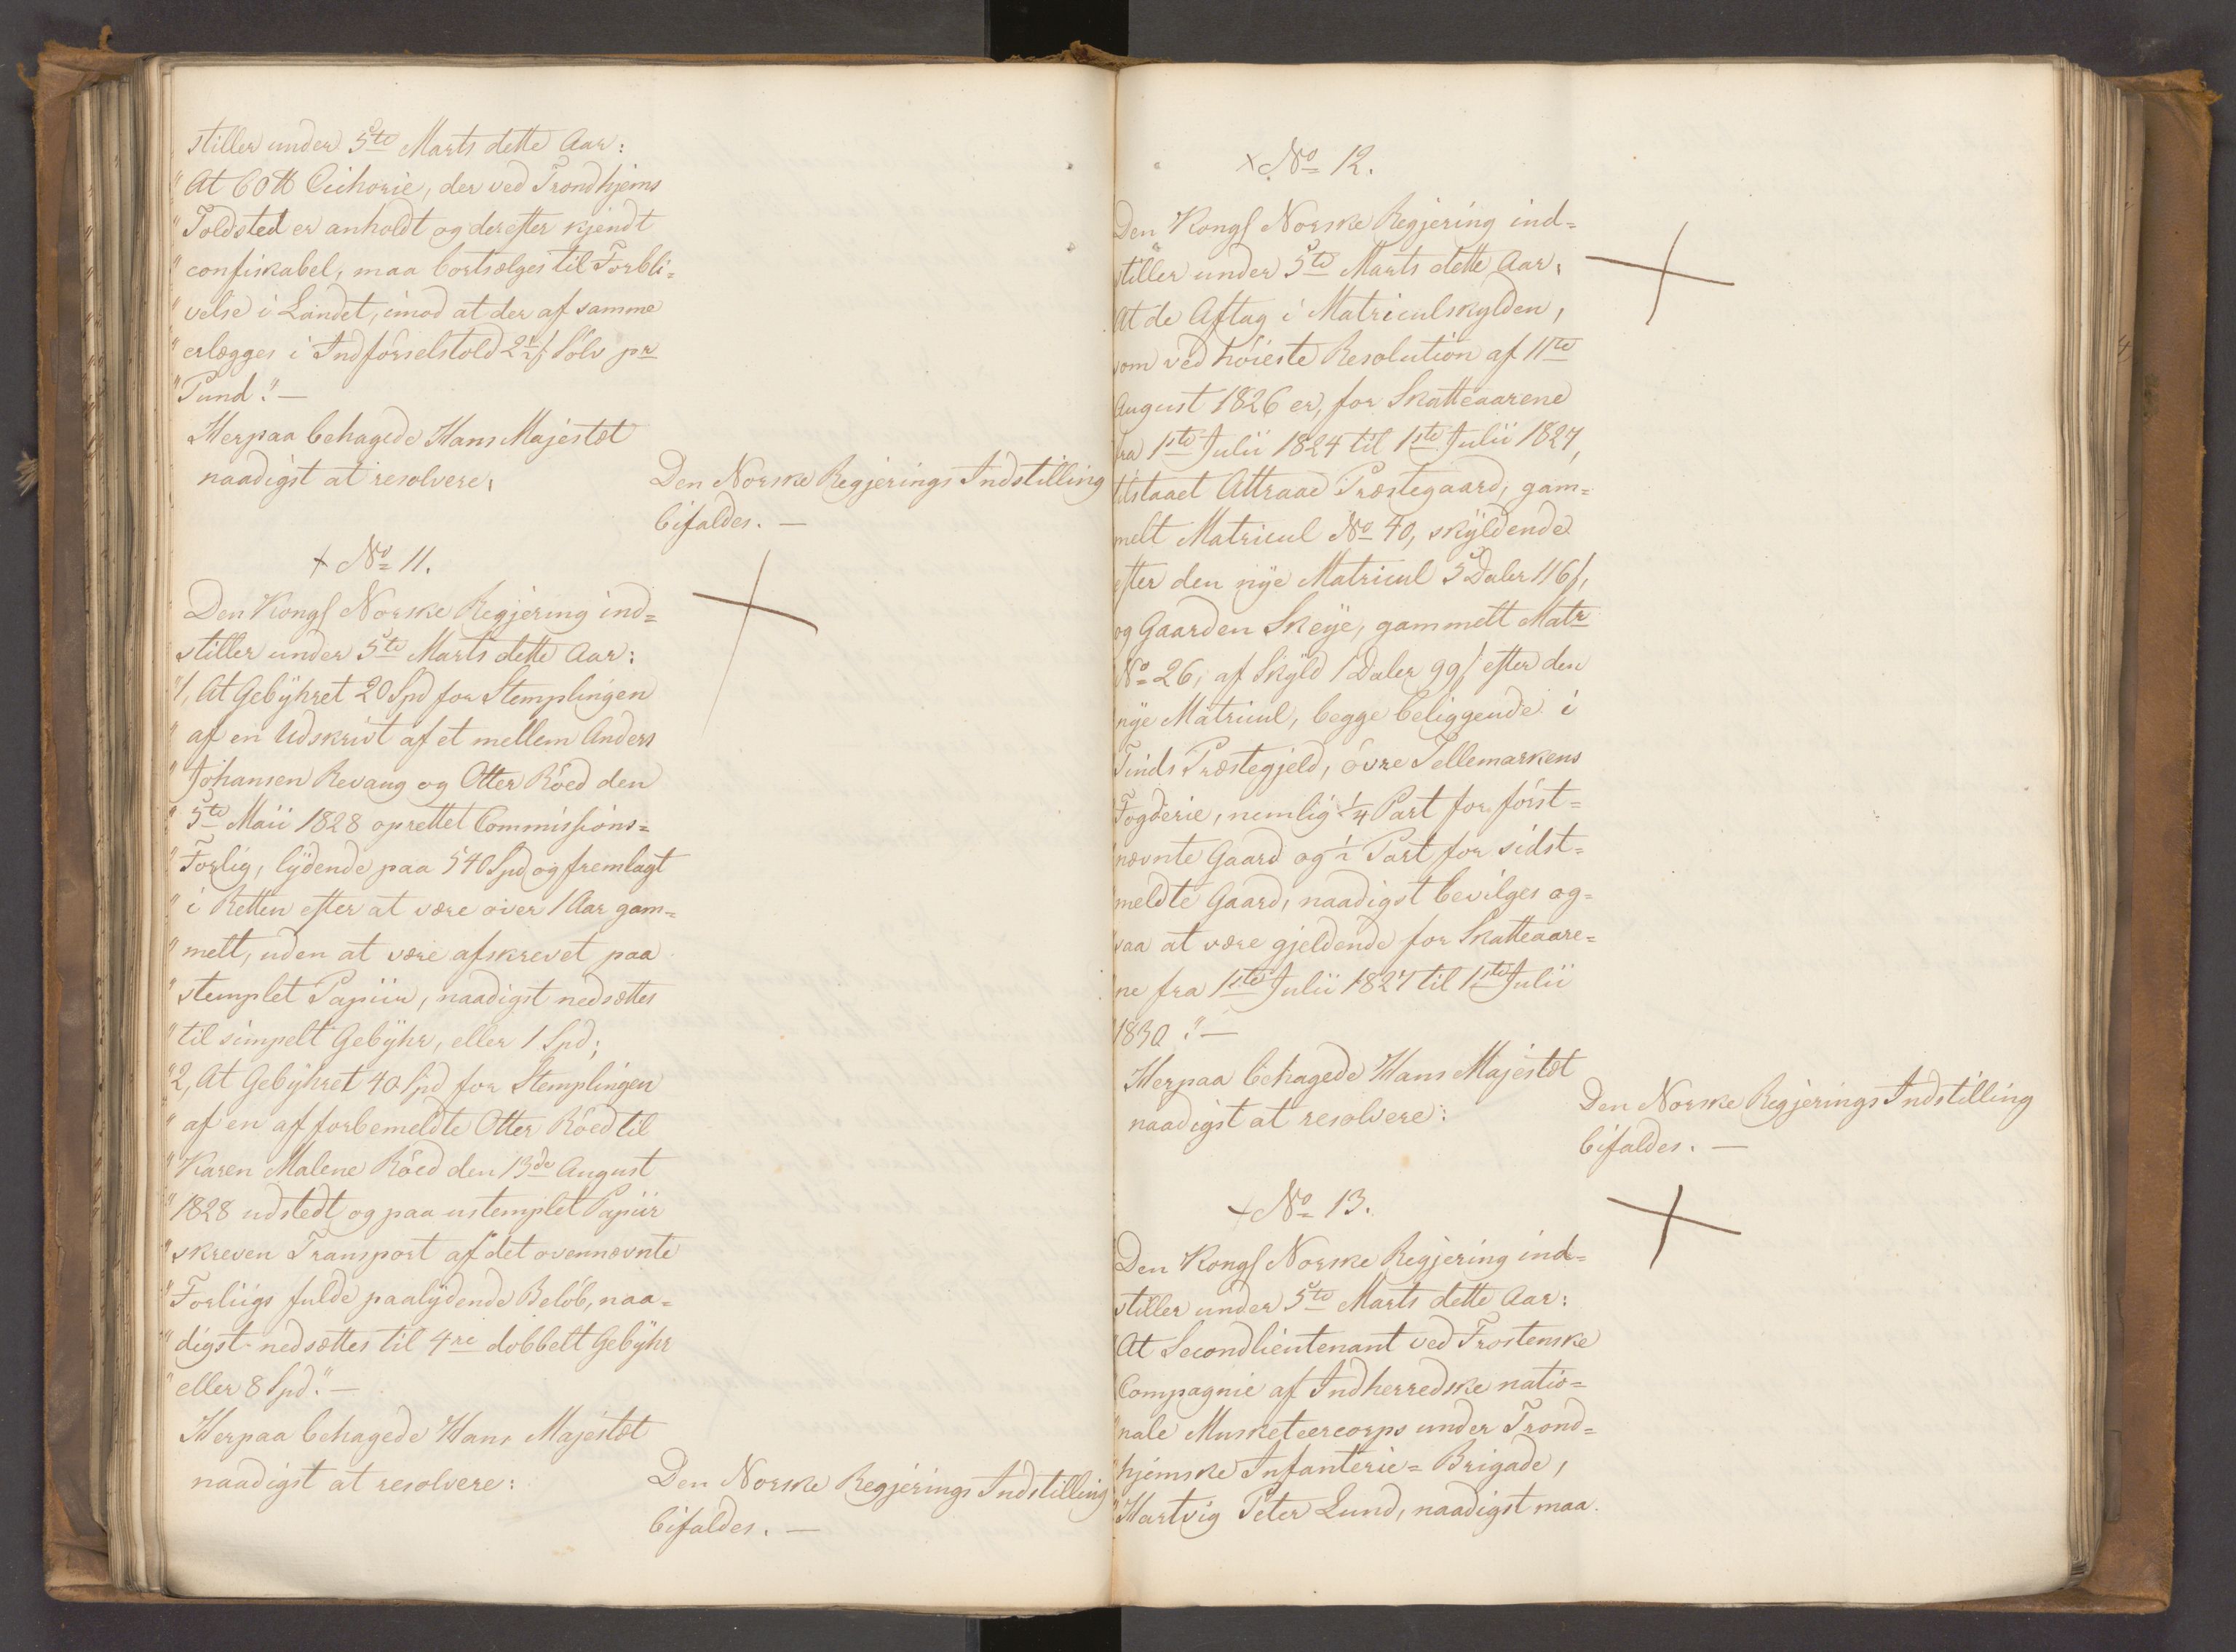 stiller under 5te Marts dette Aar:
"At 60 ℔ Cichorie, der ved Trondhjems
"Toldsted er anholdt og derefter kjendt
"confiskabel, maa bortsælges til Forbli=
"velse i Landet, imod at der af samme
"erlægges i Indförselstold 2½ ſ Sölv pr
"Pund." —
Herpaa behagede Hans Majestæt
naadigst at resolvere:
Den Norske Regjerings Indstilling
bifaldes. —
+ No 11.
Den Kongl Norske Regjering ind=
stiller under 5te Marts dette Aar:
"1, At Gebÿhret 20 Spd for Stemplingen
"af en Udskrivt af et mellem Anders
"Johansen Revaug og Otter Röed den
"5te Maii 1828 oprettet Commissions=
"Forlig, lÿdende paa 540 Spd og fremlagt
"i Retten efter at være over 1 Aar gam=
"melt, uden at være afskrevet paa
"stemplet Papiir, naadigst nedsættes
"til simpelt Gebÿhr, eller 1 Spd;
"2, At Gebÿhret 40 Spd for Stemplingen
"af en af forbemeldte Otter Röed til
"Karen Malene Röed den 13de August
"1828 udstedt og paa ustemplet Papiir
"skreven Transport af det ovennævnte
"Forliigs fulde paalÿdende Belöb, naa=
"digst nedsættes til 4re dobbelt Gebÿhr
"eller 8 Spd." —
Herpaa behagede Hans Majestæt
naadigst at resolvere:
Den Norske Regjerings Indstilling
bifaldes. —
+ No 12.
Den Kongl Norske Regjering ind=
stiller under 5te Marts dette Aar:
At de Aftag i Matriculskylden,
som ved höieste Resolution af 11te
August 1826 er, for Skatteaarene
fra 1ste Julii 1824 til 1ste Julii 1827,
tilstaaet Attraae Præstegaard, gam=
melt Matricul No 40, skÿldende
efter den nÿe Matricul 5 Daler 116 ſ,
og Gaarden Skeÿe, gammelt Matr
No 26, af Skÿld 1 Daler 99 ſ efter den
nÿe Matricul, begge beliggende i
Tinds Præstegjeld, övre Tellemarkens
Fogderie, nemlig ¼ Part for först=
nævnte Gaard og ½ Part for sidst=
meldte Gaard, naadigst bevilges og=
saa at være gjeldende for Skatteaare=
ne fra 1ste Julii 1827 til 1ste Julii
1830." —
Herpaa behagede Hans Majestæt
naadigst at resolvere:
Den Norske Regjerings Indstilling
bifaldes. —
+ No 13.
Den Kongl Norske Regjering ind=
stiller under 5te Marts dette Aar:
"At Secondlieutenant ved Frostenske
"Compagnie af Indherredske natio=
"nale Musketeercorps under Trond=
"hjemske Infanterie=Brigade,
"Hartvig Peter Lund, naadigst maa